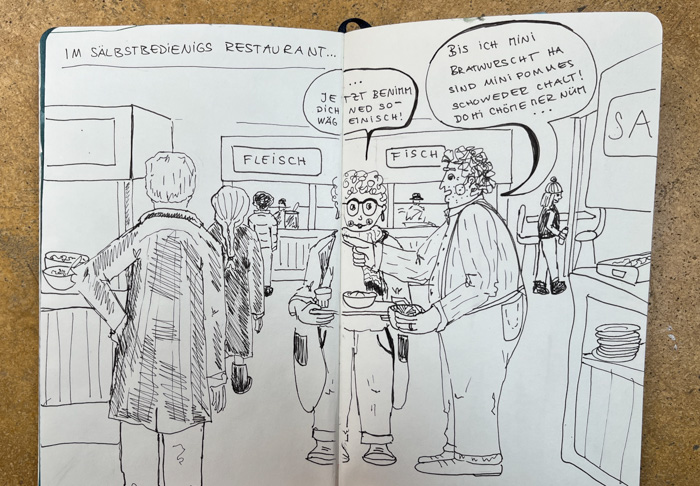 IM SÄLBSTBEDIENIGS RESTAURANT...
...
JETZT BENIMM
DICH NED SO-
WÄG EINISCH!
BIS ICH MINI
BRATWURSCHT HA
SIND MINI POMMES
SCHOWEDER CHALT!
DO HI CHÖME MER NÜM
...
FLEISCH
FISCH
SA